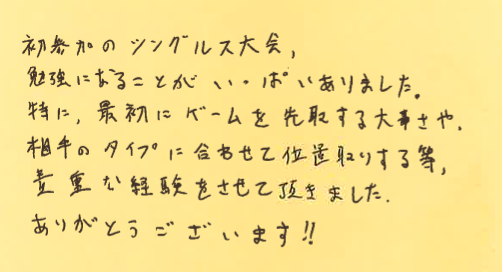 初参加のシングルス大会,
勉強になることがいっぱいありました。
特に,最初にゲームを先取する大事さや,
相手のタイプに合わせて位置取りする等,
貴重な経験をさせて頂きました.
ありがとうございます!!